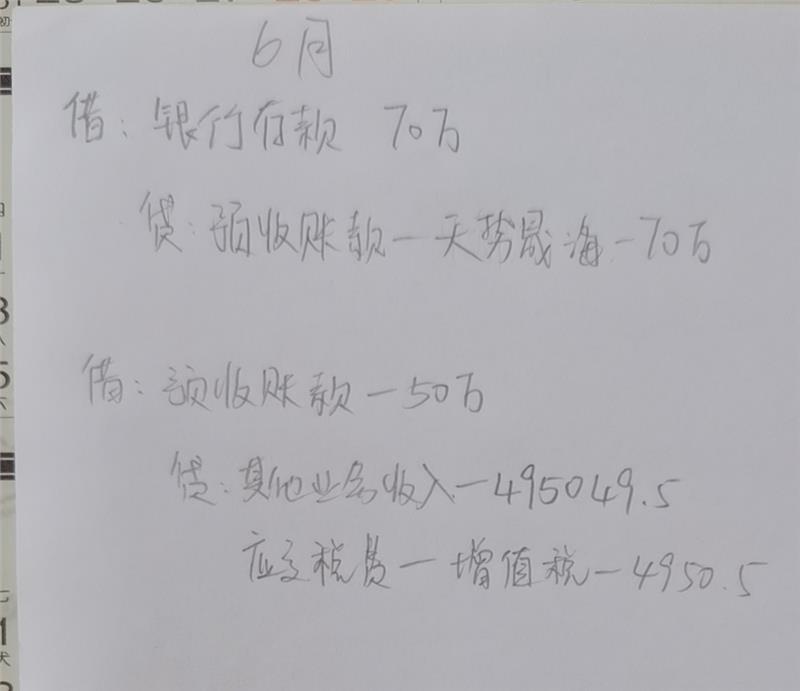 6月
借：银行存款 70万
贷：预收账款一天势晟海一70万
借：预收账款一50万
贷：其他业务收入一495049.5
应交税费一增值税一4950.5